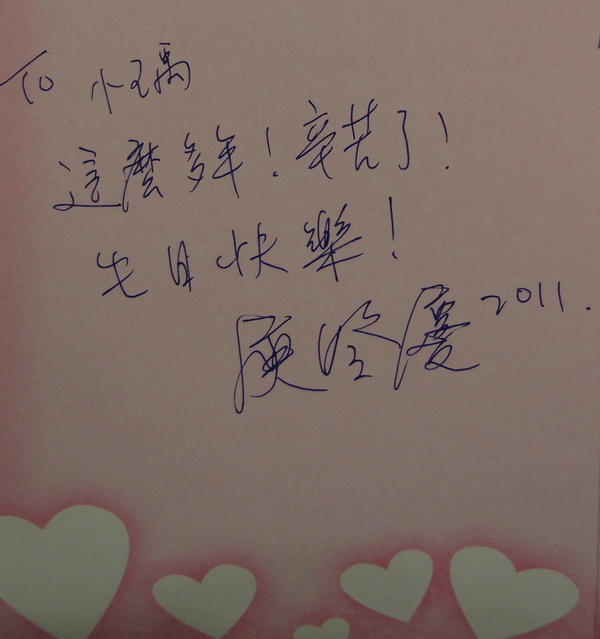 To
這麼多年！辛苦了！
生日快樂！
庾澄慶 2011.